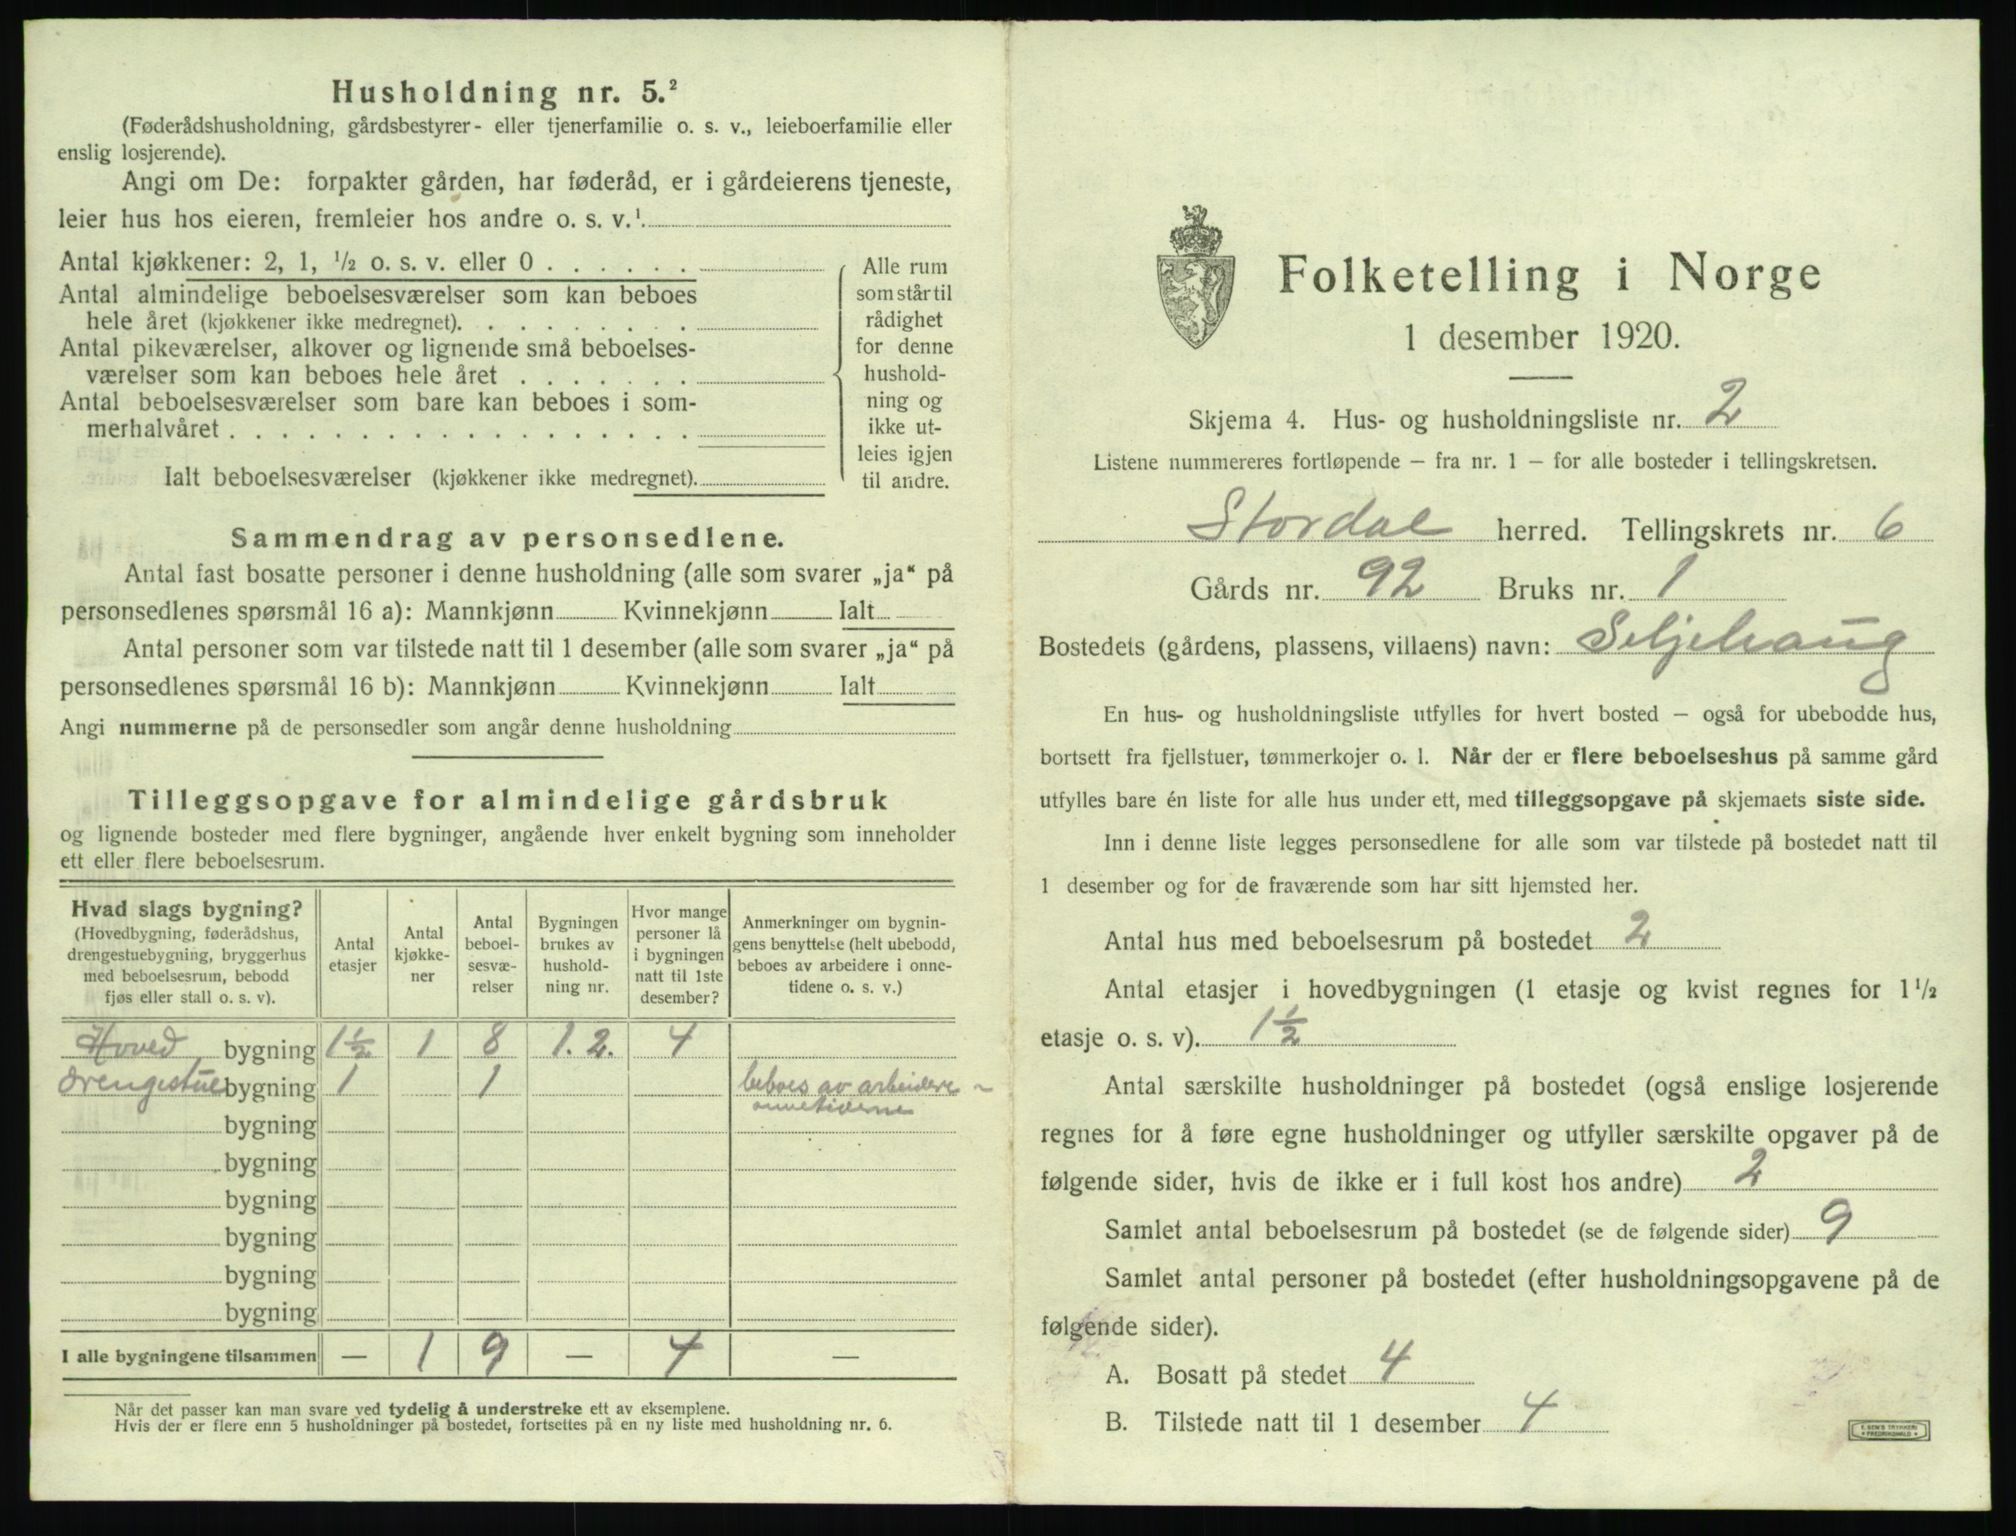 Husholdning nr. 5.²
(Føderådshusholdning, gårdsbestyrer- eller tjenerfamilie o. s. v., leieboerfamilie eller
enslig losjerende).
Angi om De: forpakter gården, har føderåd, er i gårdeierens tjeneste,
leier hus hos eieren, fremleier hos andre o. s. v.¹.
Antal kjøkkener: 2, 1, ½ o. s. v. eller 0 . . . . . .
Antal almindelige beboelsesværelser som kan beboes
hele året (kjøkkener ikke medregnet). . . . . . . . .
Antal pikeværelser, alkover og lignende små beboelses-
værelser som kan beboes hele året . . . . . . .
Antal beboelsesværelser som bare kan beboes i som-
merhalvåret . . . . . . . . . . . . . . . . . .
Ialt beboelsesværelser (kjøkkener ikke medregnet).
Alle rum
som står til
rådighet
for denne
hushold-
ning og
ikke ut-
leies igjen
til andre.
Sammendrag av personsedlene.
Antal fast bosatte personer i denne husholdning (alle som svarer „ja“ på
personsedlenes spørsmål 16 a): Mannkjønn Kvinnekjønn Ialt
Antal personer som var tilstede natt til 1 desember (alle som svarer „ja“ på
personsedlenes spørsmål 16 b): Mannkjønn Kvinnekjønn Ialt
Angi nummerne på de personsedler som angår denne husholdning
Tilleggsopgave for almindelige gårdsbruk
og lignende bosteder med flere bygninger, angående hver enkelt bygning som inneholder
ett eller flere beboelsesrum.
Hvad slags bygning?
(Hovedbygning, føderådshus,
drengestuebygning, bryggerhus
med beboelsesrum, bebodd
fjøs eller stall o. s. v).
Antal
etasjer
Antal
kjøkke-
ner
Antal
beboel-
sesvæ-
relser
Bygningen
brukes av
hushold-
ning nr.
Hvor mange
personer lå
i bygningen
natt til 1ste
desember?
Anmerkninger om bygnin-
gens benyttelse (helt ubebodd,
beboes av arbeidere i onne-
tidene o. s. v.)
Hoved bygning 1½ 1 8 1. 2. 4
Drengestue bygning 1 1 beboes av arbeidere
onnetiderne
bygning
bygning
bygning
bygning
bygning
bygning
I alle bygningene tilsammen — 1 9 — 4 —
Når det passer kan man svare ved tydelig å understreke ett av eksemplene.
Hvis der er flere enn 5 husholdninger på bostedet, fortsettes på en ny liste med husholdning nr. 6.
Folketelling i Norge
1 desember 1920.
Skjema 4. Hus- og husholdningsliste nr. 2
Listene nummereres fortløpende — fra nr. 1 — for alle bosteder i tellingskretsen.
Stordal herred. Tellingskrets nr. 6
Gårds nr. 92 Bruks nr. 1
Bostedets (gårdens, plassens, villaens) navn: Seljehaug
En hus- og husholdningsliste utfylles for hvert bosted — også for ubebodde hus,
bortsett fra fjellstuer, tømmerkojer o. l. Når der er flere beboelseshus på samme gård
utfylles bare én liste for alle hus under ett, med tilleggsopgave på skjemaets siste side.
Inn i denne liste legges personsedlene for alle som var tilstede på bostedet natt til
1 desember og for de fraværende som har sitt hjemsted her.
Antal hus med beboelsesrum på bostedet 2
Antal etasjer i hovedbygningen (1 etasje og kvist regnes for 1½
etasje o. s. v). 1½
Antal særskilte husholdninger på bostedet (også enslige losjerende
regnes for å føre egne husholdninger og utfyller særskilte opgaver på de
følgende sider, hvis de ikke er i full kost hos andre) 2
Samlet antal beboelsesrum på bostedet (se de følgende sider) 9
Samlet antal personer på bostedet (efter husholdningsopgavene på de
følgende sider).
A. Bosatt på stedet 4
B. Tilstede natt til 1 desember 4